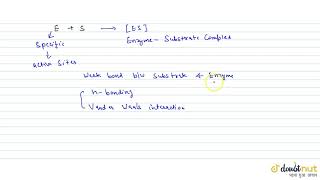 E + S → [ES]
Specific Enzyme - Substrate Complex
Active Sites
Weak bond b/w Substrate & Enzyme
H-bonding
Vander Waals interaction
doubtnut